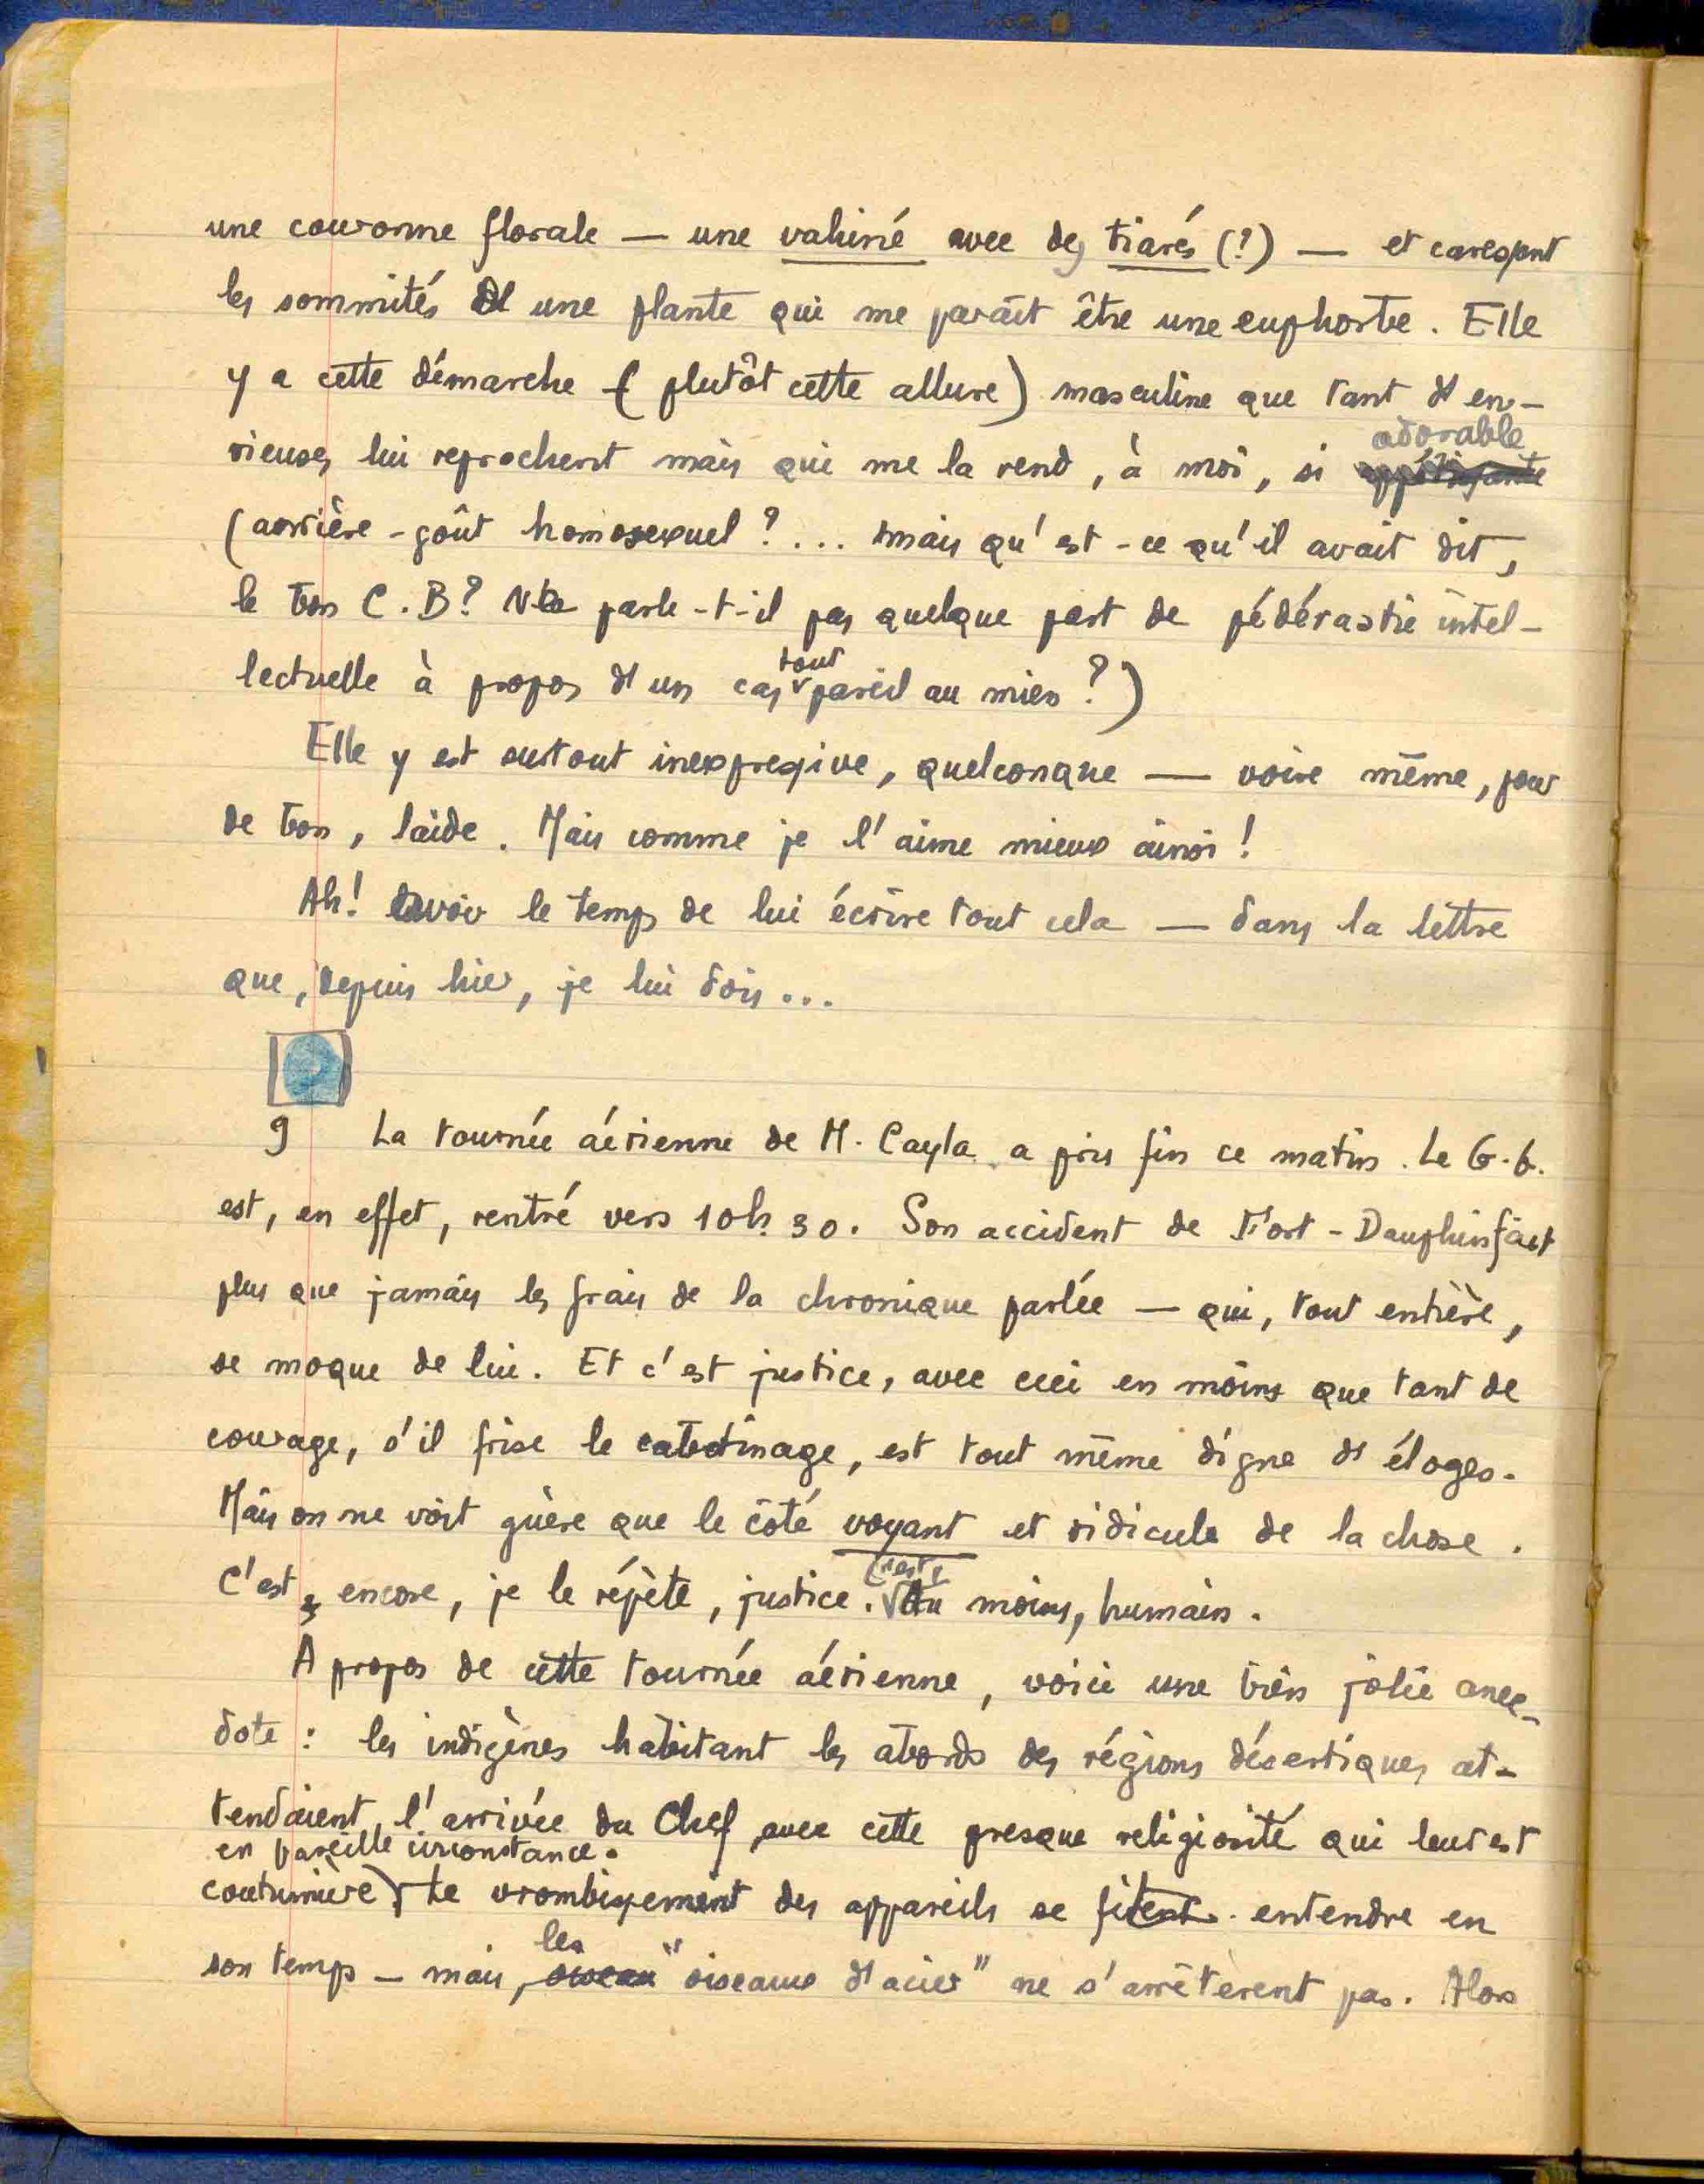 une couronne florale — une vahiné avec des tiarés (?) — et caressant
les sommités d'une plante qui me paraît être une euphorbe. Elle
y a cette démarche (plutôt cette allure) masculine que tant d'en-
vieuses lui reprochent mais qui me la rend, à moi, si adorable appétissante
(arrière-goût homosexuel ?... mais qu'est-ce qu'il avait dit,
le bon C.B? Ne parle-t-il pas quelque part de pédérastie intel-
lectuelle à propos d'un cas tout pareil au mien ?)
Elle y est surtout inexpressive, quelconque — voire même, pour
de bon, laide. Mais comme je l'aime mieux ainsi !
Ah! avoir le temps de lui écrire tout cela — dans la lettre
que, depuis hier, je lui dois...
9 La tournée aérienne de M. Cayla a pris fin ce matin. Le G.G.
est, en effet, rentré vers 10h.30. Son accident de Fort-Dauphin fait
plus que jamais les frais de la chronique parlée — qui, tout entière,
se moque de lui. Et c'est justice, avec ceci en moins que tant de
courage, s'il frise le cabotinage, est tout même digne d'éloges.
Mais on ne voit guère que le côté voyant et ridicule de la chose.
C'est, encore, je le répète, justice. C'est, au moins, humain.
À propos de cette tournée aérienne, voici une bien jolie anec-
dote : les indigènes habitant les abords des régions désertiques at-
tendaient l'arrivée du Chef avec cette presque religiosité qui leur est
en pareille circonstance.
coutumière Le vrombissement des appareils se fit entendre en
son temps — mais, les oiseau "oiseaux d'acier" ne s'arrêtèrent pas. Alors